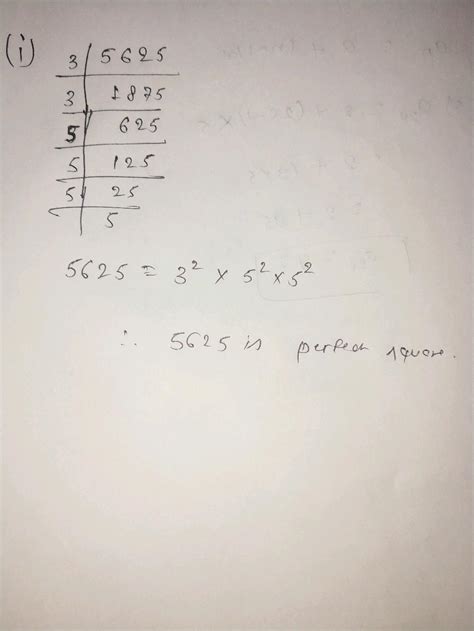 (i) 3 | 5625
3 | 1875
5 | 625
5 | 125
5 | 25
5
5625 = 3² × 5² × 5²
∴ 5625 is perfect square.